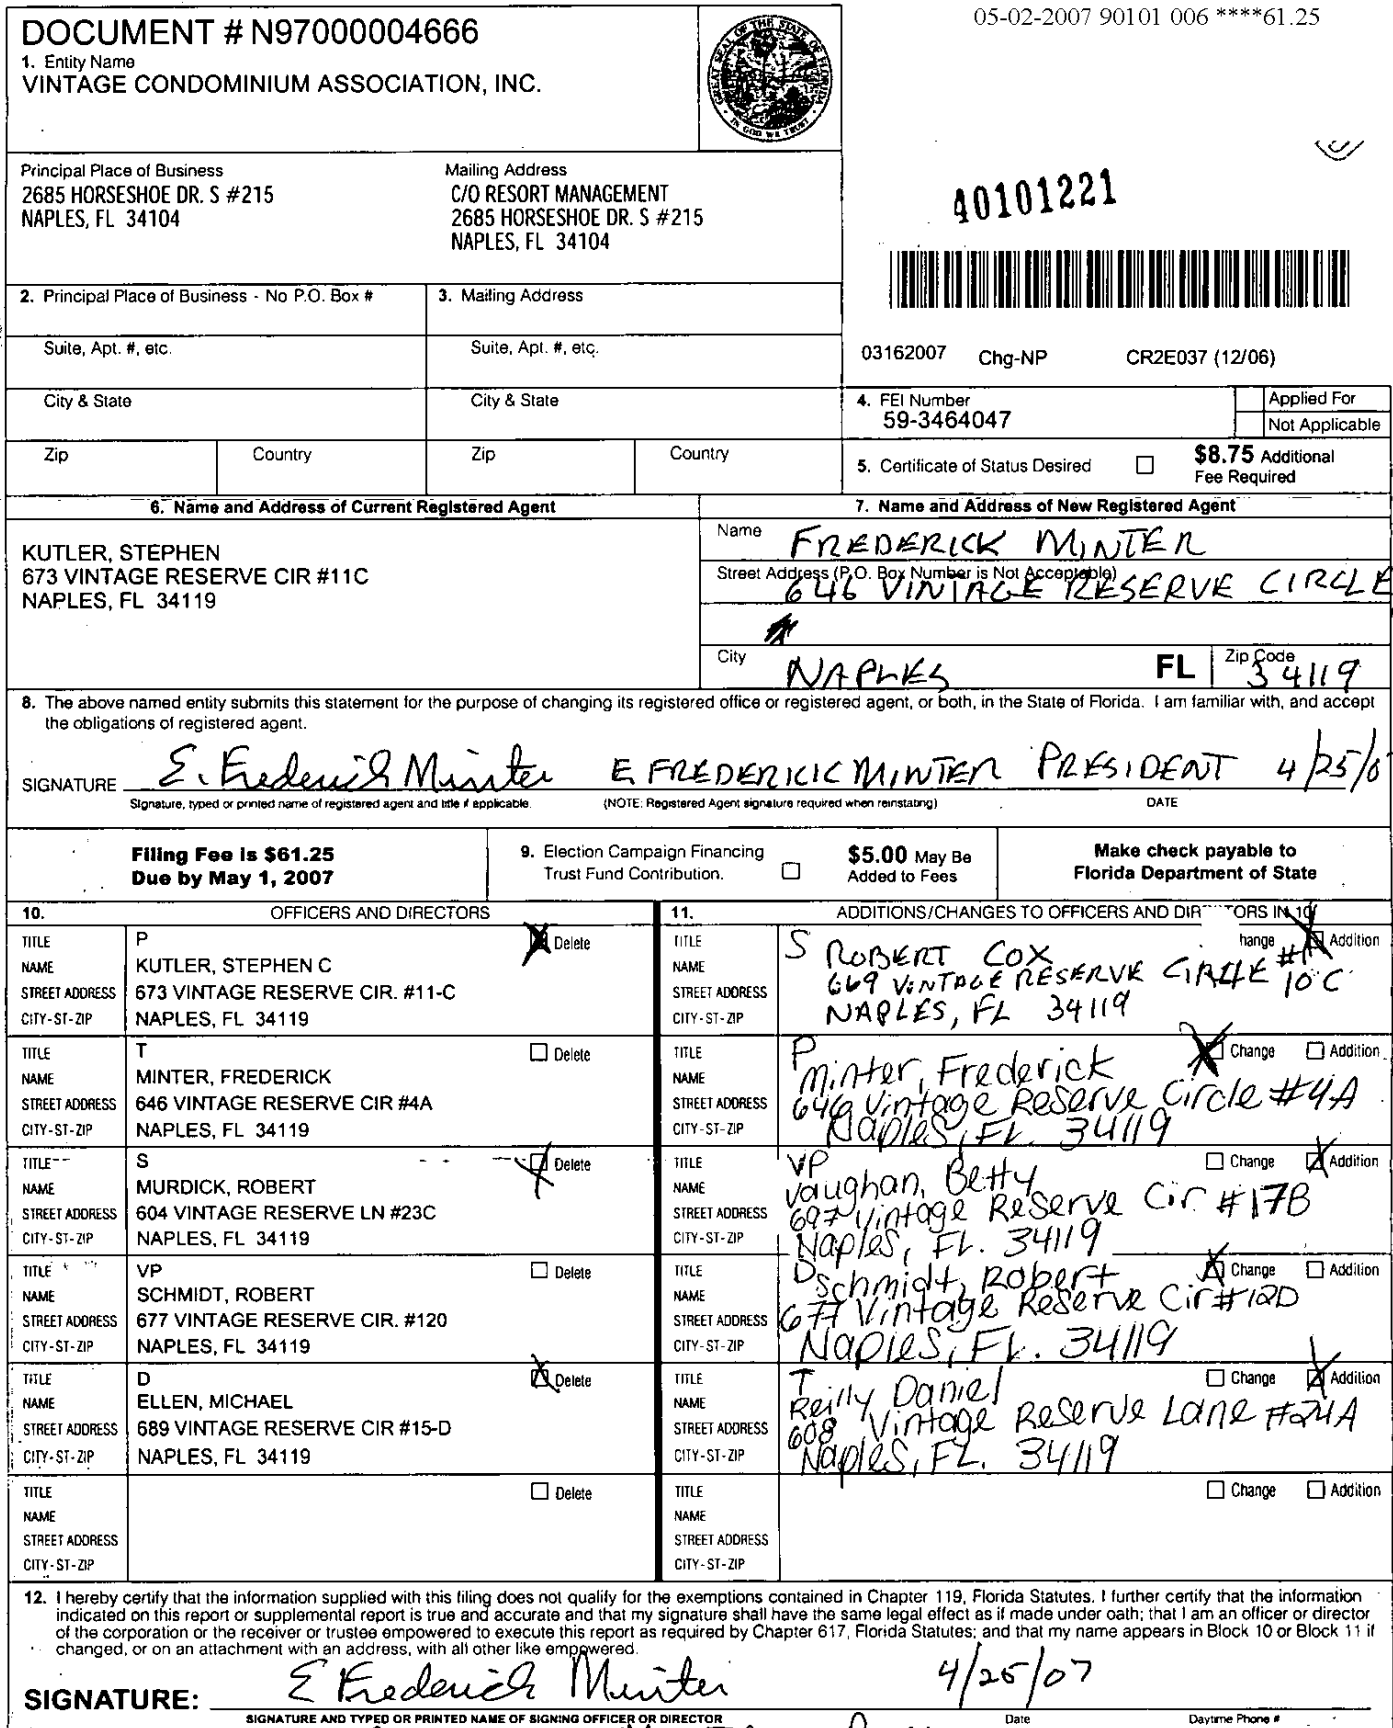 05-02-2007 90101 006 ****61.25
DOCUMENT # N97000004666
1. Entity Name
VINTAGE CONDOMINIUM ASSOCIATION, INC.
GREAT SEAL OF THE STATE OF FLORIDA
IN GOD WE TRUST
Principal Place of Business
2685 HORSESHOE DR. S #215
NAPLES, FL 34104
Mailing Address
C/O RESORT MANAGEMENT
2685 HORSESHOE DR. S #215
NAPLES, FL 34104
40101221
2. Principal Place of Business - No P.O. Box #
3. Mailing Address
Suite, Apt. #, etc.
Suite, Apt. #, etc.
03162007 Chg-NP CR2E037 (12/06)
City & State
City & State
4. FEI Number
59-3464047
Applied For
Not Applicable
Zip Country
Zip Country
5. Certificate of Status Desired
$8.75 Additional
Fee Required
6. Name and Address of Current Registered Agent
7. Name and Address of New Registered Agent
KUTLER, STEPHEN
673 VINTAGE RESERVE CIR #11C
NAPLES, FL 34119
Name FREDERICK MINTER
Street Address (P.O. Box Number is Not Acceptable)
646 VINTAGE RESERVE CIRCLE
City NAPLES FL Zip Code 34119
8. The above named entity submits this statement for the purpose of changing its registered office or registered agent, or both, in the State of Florida. I am familiar with, and accept
the obligations of registered agent.
SIGNATURE E. Frederick Minter E FREDERICK MINTER PRESIDENT 4/25/0
Signature, typed or printed name of registered agent and title if applicable. (NOTE: Registered Agent signature required when reinstating) DATE
Filing Fee is $61.25
Due by May 1, 2007
9. Election Campaign Financing
Trust Fund Contribution.
$5.00 May Be
Added to Fees
Make check payable to
Florida Department of State
10. OFFICERS AND DIRECTORS
11. ADDITIONS/CHANGES TO OFFICERS AND DIR ORS IN 10
TITLE P Delete
NAME KUTLER, STEPHEN C
STREET ADDRESS 673 VINTAGE RESERVE CIR. #11-C
CITY-ST-ZIP NAPLES, FL 34119
TITLE S hange Addition
NAME ROBERT COX
STREET ADDRESS 669 VINTAGE RESERVE CIRCLE # 10C
CITY-ST-ZIP NAPLES, FL 34119
TITLE T Delete
NAME MINTER, FREDERICK
STREET ADDRESS 646 VINTAGE RESERVE CIR #4A
CITY-ST-ZIP NAPLES, FL 34119
TITLE P Change Addition
NAME Minter, Frederick
STREET ADDRESS 646 Vintage Reserve Circle #4A
CITY-ST-ZIP Naples, FL. 34119
TITLE S Delete
NAME MURDICK, ROBERT
STREET ADDRESS 604 VINTAGE RESERVE LN #23C
CITY-ST-ZIP NAPLES, FL 34119
TITLE VP Change Addition
NAME Vaughan, Betty
STREET ADDRESS 697 Vintage Reserve Cir. #17B
CITY-ST-ZIP Naples, FL. 34119
TITLE VP Delete
NAME SCHMIDT, ROBERT
STREET ADDRESS 677 VINTAGE RESERVE CIR. #120
CITY-ST-ZIP NAPLES, FL 34119
TITLE D Change Addition
NAME Schmidt, Robert
STREET ADDRESS 677 Vintage Reserve Cir #12D
CITY-ST-ZIP Naples, FL. 34119
TITLE D Delete
NAME ELLEN, MICHAEL
STREET ADDRESS 689 VINTAGE RESERVE CIR #15-D
CITY-ST-ZIP NAPLES, FL 34119
TITLE T Change Addition
NAME Reilly Daniel
STREET ADDRESS 608 Vintage Reserve Lane #24A
CITY-ST-ZIP Naples, FL. 34119
TITLE Delete
NAME
STREET ADDRESS
CITY-ST-ZIP
TITLE Change Addition
NAME
STREET ADDRESS
CITY-ST-ZIP
12. I hereby certify that the information supplied with this filing does not qualify for the exemptions contained in Chapter 119, Florida Statutes. I further certify that the information
indicated on this report or supplemental report is true and accurate and that my signature shall have the same legal effect as if made under oath; that I am an officer or director
of the corporation or the receiver or trustee empowered to execute this report as required by Chapter 617, Florida Statutes; and that my name appears in Block 10 or Block 11 if
changed, or on an attachment with an address, with all other like empowered.
SIGNATURE: E Frederick Minter 4/25/07
SIGNATURE AND TYPED OR PRINTED NAME OF SIGNING OFFICER OR DIRECTOR Date Daytime Phone #